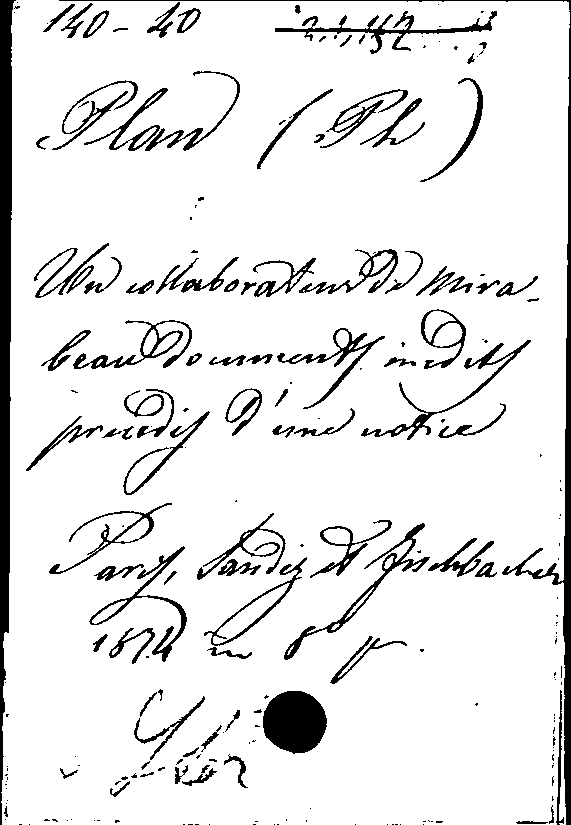 140-40
Plan (Ph)
Un collaborateur de Mira-
beau documents inedits
precedis d'une notice
Paris, Sandoz et Fischbacher
1874 in 8°